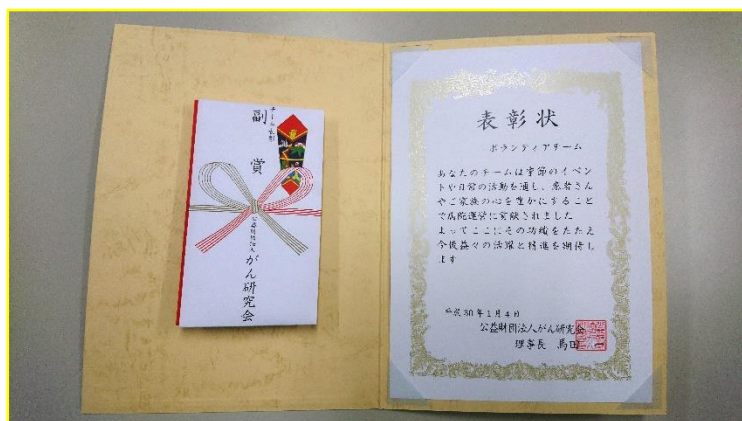 チーム表彰
副賞
公益財団法人
がん研究会
表彰状
ボランティアチーム
あなたのチームは季節のイベン
トや日常の活動を通し、患者さん
やご家族の心を豊かにすること
で病院運営に貢献されました
よってここにその功績をたたえ
今後益々の活躍と精進を期待し
ます
平成30年1月4日
公益財団法人がん研究会
理事長 馬田一